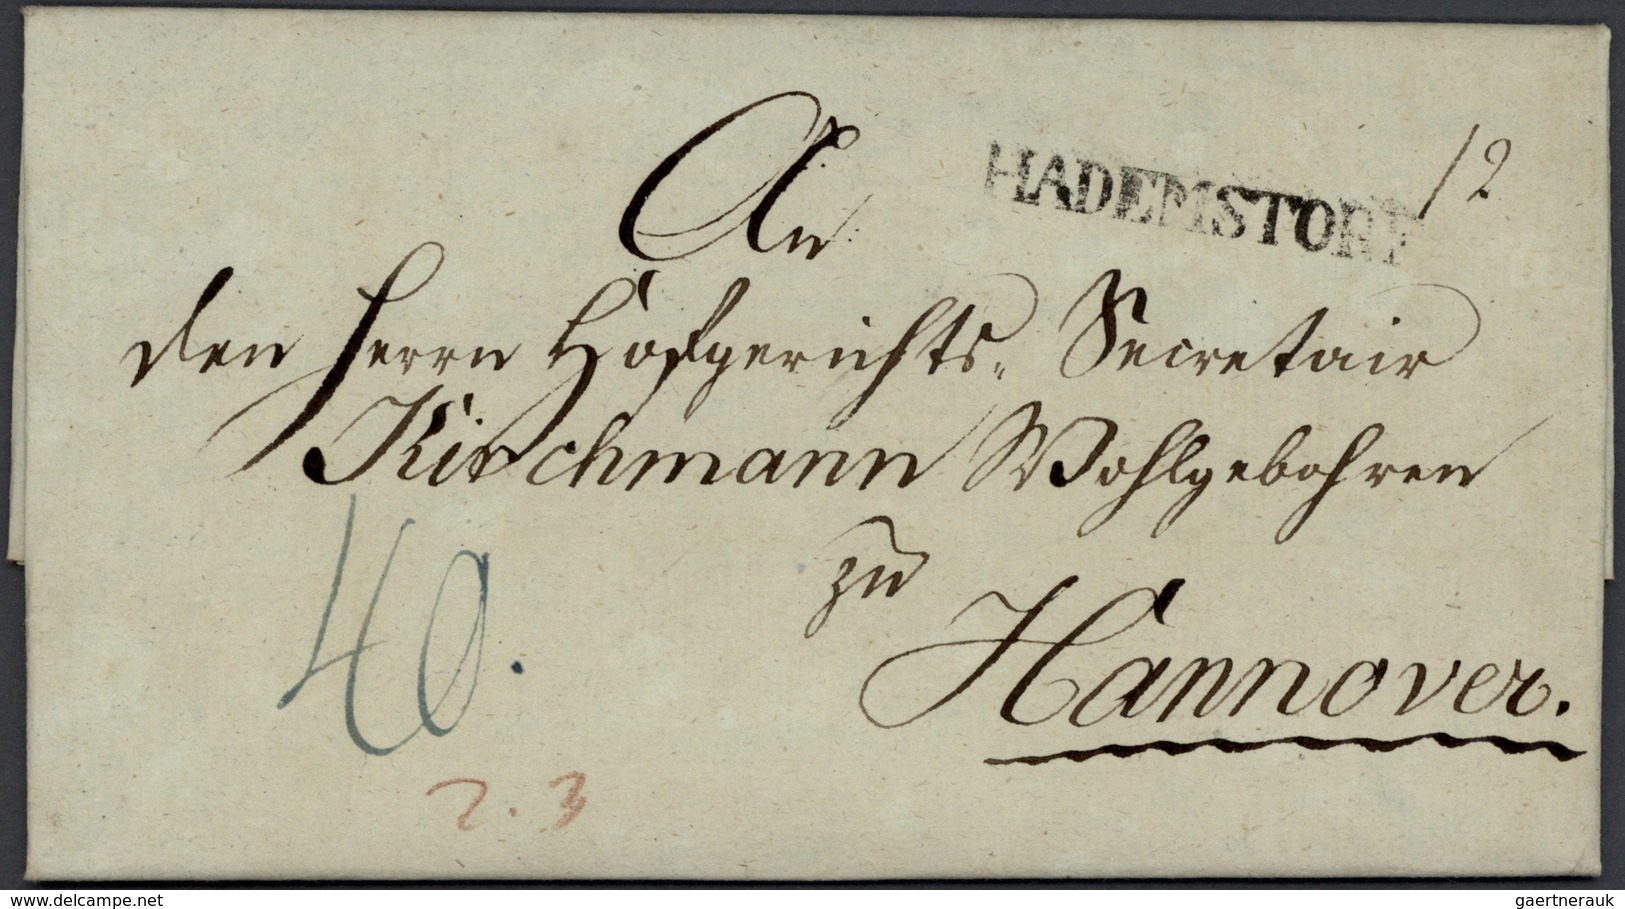 An
HADEMSTORF
/2
den Herrn Hofgerichts- Secretair
Kirchmann Wohlgebohren
zu
Hannover.
40.
2. 3
delcampe.net
gaertnerauk